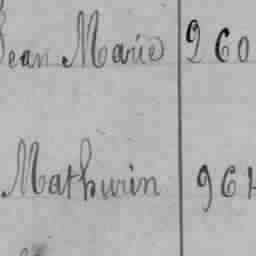 Jean Marie 960
Mathurin 961